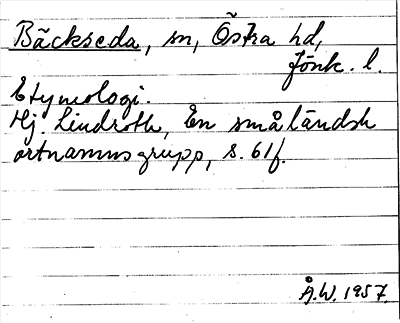 Bäckseda, sn, Östra hd,
Jönk. l.
Etymologi.
Hj. Lindroth, En småländsk
ortnamnsgrupp, s. 61f.
Å.W. 1957.